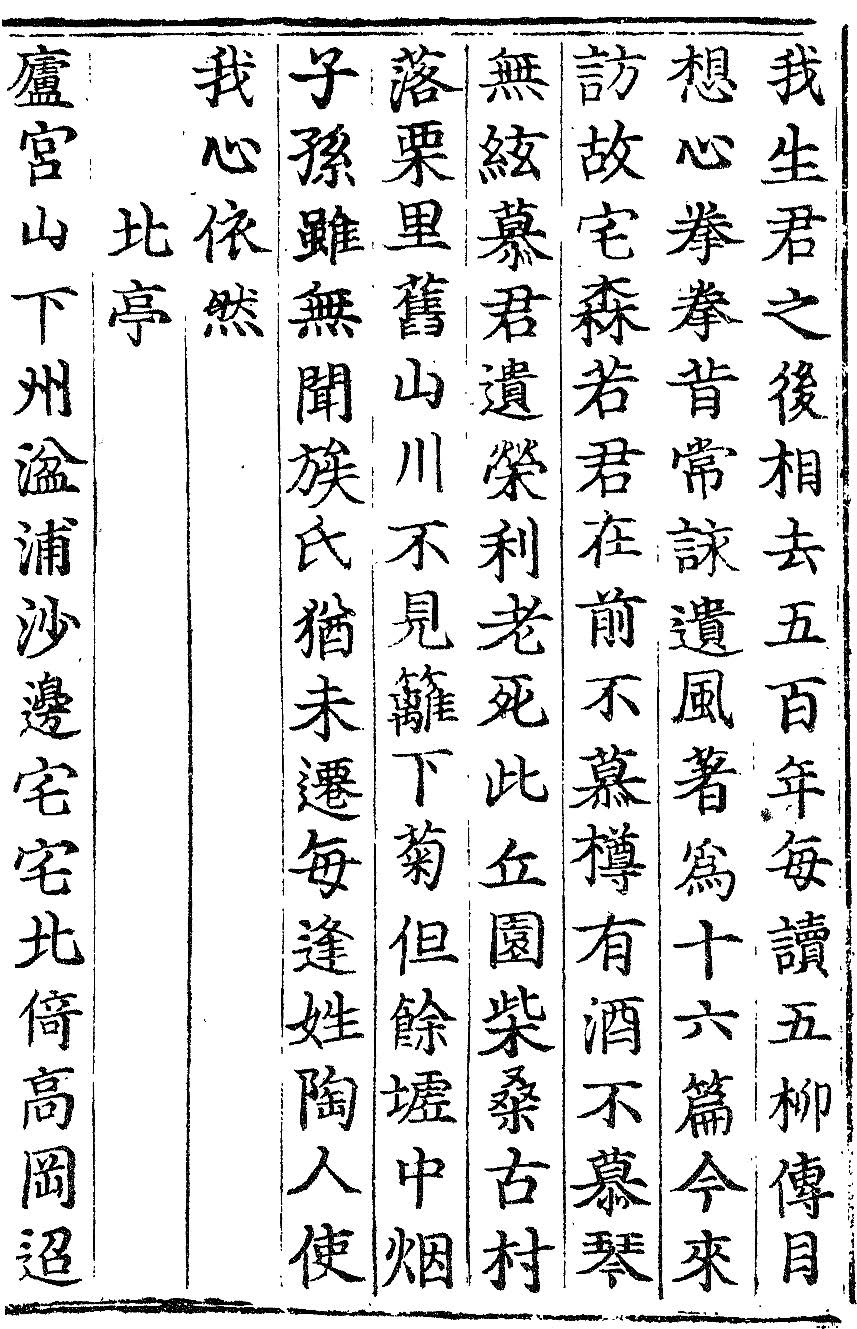 我生君之後相去五百年每讀五柳傳目
想心拳拳昔常詠遺風著爲十六篇今來
訪故宅森若君在前不慕樽有酒不慕琴
無絃慕君遺榮利老死此丘園柴桑古村
落栗里舊山川不見籬下菊但餘墟中烟
子孫雖無聞族氏猶未遷每逢姓陶人使
我心依然
北亭
廬宮山下州湓浦沙邊宅宅北倚高岡迢